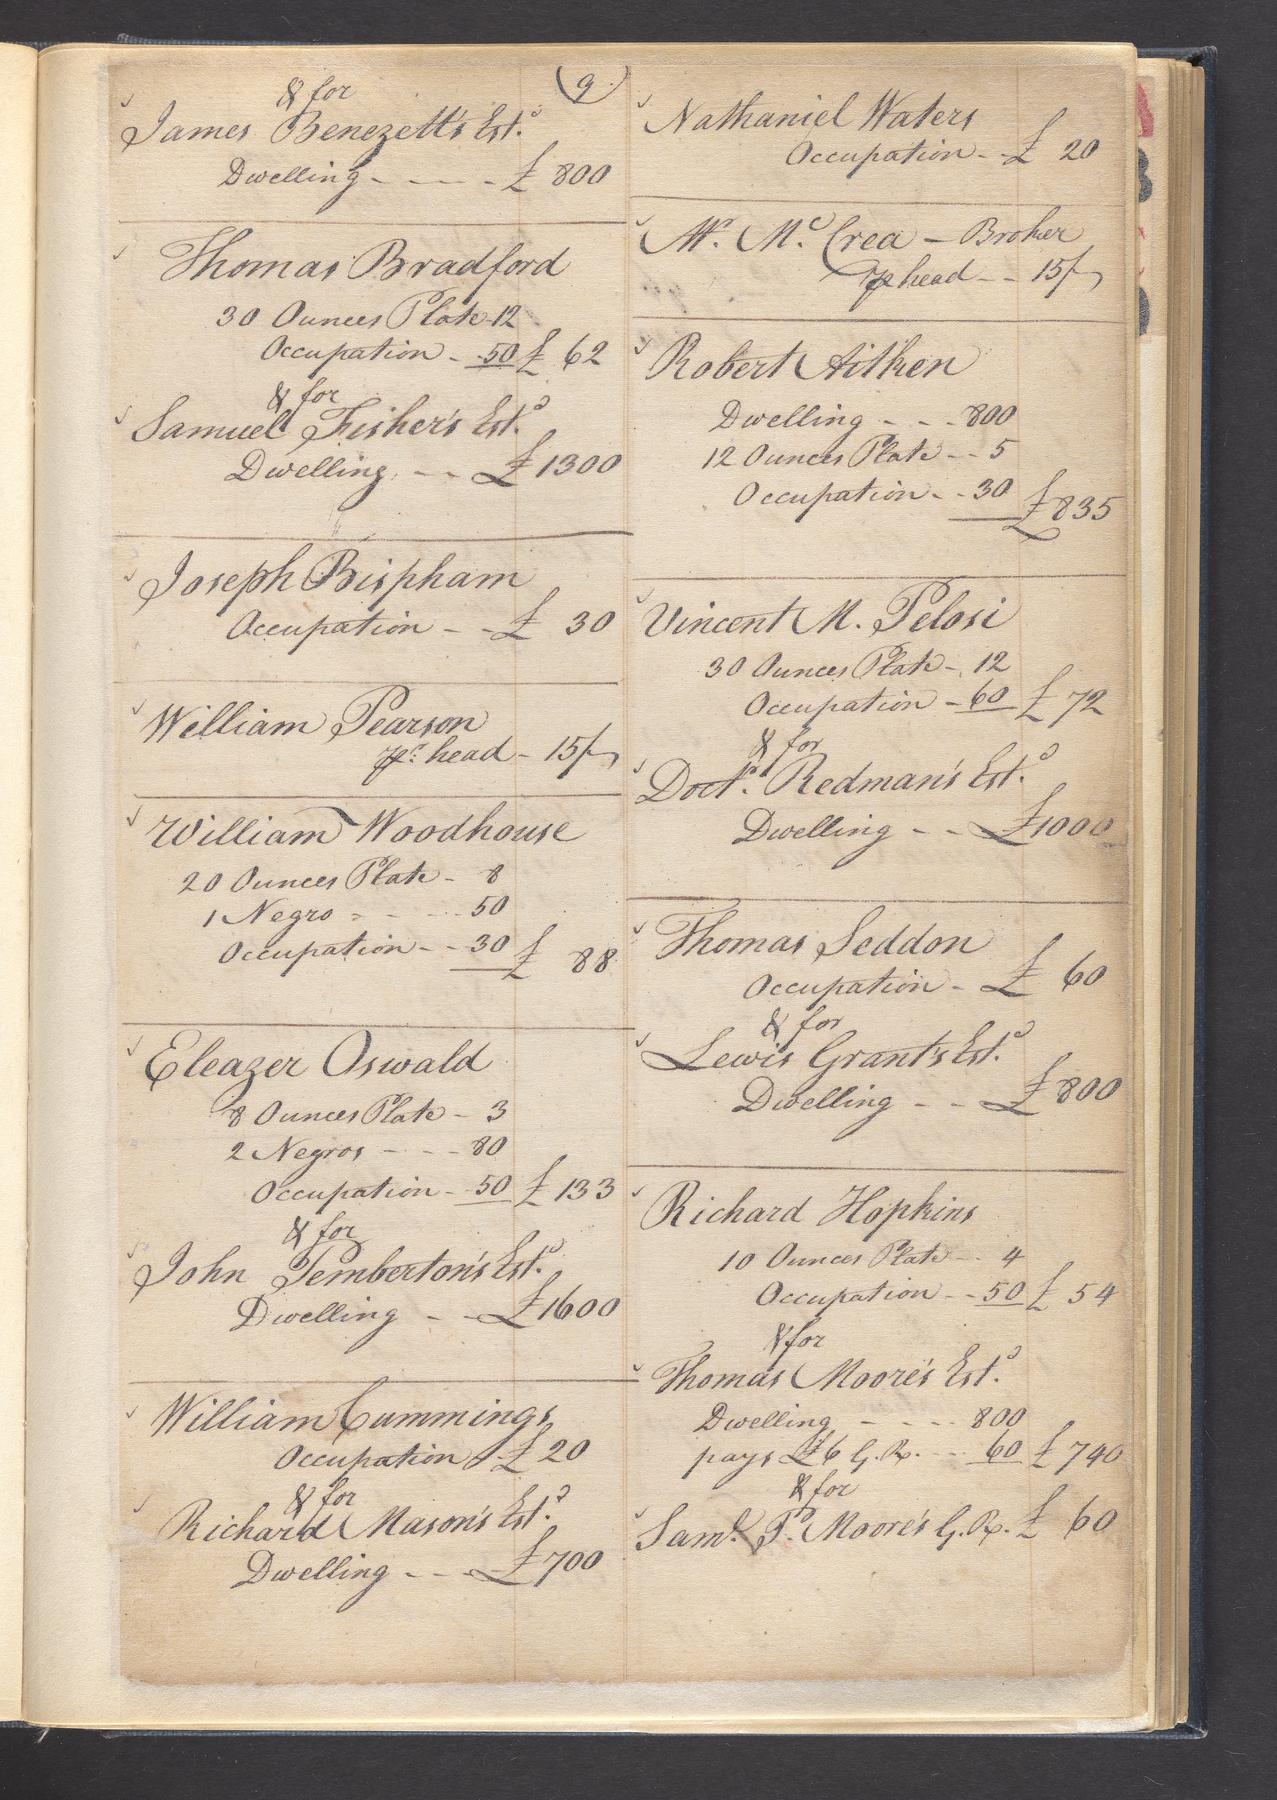 (9)
& for
James Benezett's Est.d
Dwelling - - - - £ 800
Thomas Bradford
30 Ounces Plate - 12
Occupation - - 50 £ 62
& for
Samuel Fisher's Est.d
Dwelling - - £ 1300
Joseph Bispham
Occupation - - £ 30
William Pearson
pr. head - 15/
William Woodhouse
20 Ounces Plate - 8
1 Negro - - - 50
Occupation - - 30 £ 88
Eleazer Oswald
8 Ounces Plate - 3
2 Negros - - - 80
Occupation - - 50 £ 133
& for
John Pemberton's Est.d
Dwelling - - £ 1600
William Cummings
Occupation - £ 20
& for
Richard Mason's Est.d
Dwelling - - - £ 700
Nathaniel Waters
Occupation - - £ 20
Mc. Crea - Broker
p head - - 15/
Robert Aitken
Dwelling - - - 800
12 Ounces Plate - - 5
Occupation - - 30 £ 835
Vincent M. Pelosi
30 Ounces Plate - 12
Occupation - 60 £ 72
& for
Doctr. Redman's Est.d
Dwelling - - £ 1000
Thomas Seddon
Occupation - £ 60
& for
Lewis Grant's Est.d
Dwelling - - £ 800
Richard Hopkins
10 Ounces Plate - - 4
Occupation - - 50 £ 54
& for
Thomas Moore's Est.d
Dwelling - - - - 800
pays £6 G. R. - - 60 £ 740
& for
Saml. P. Moore's G. R. £ 60